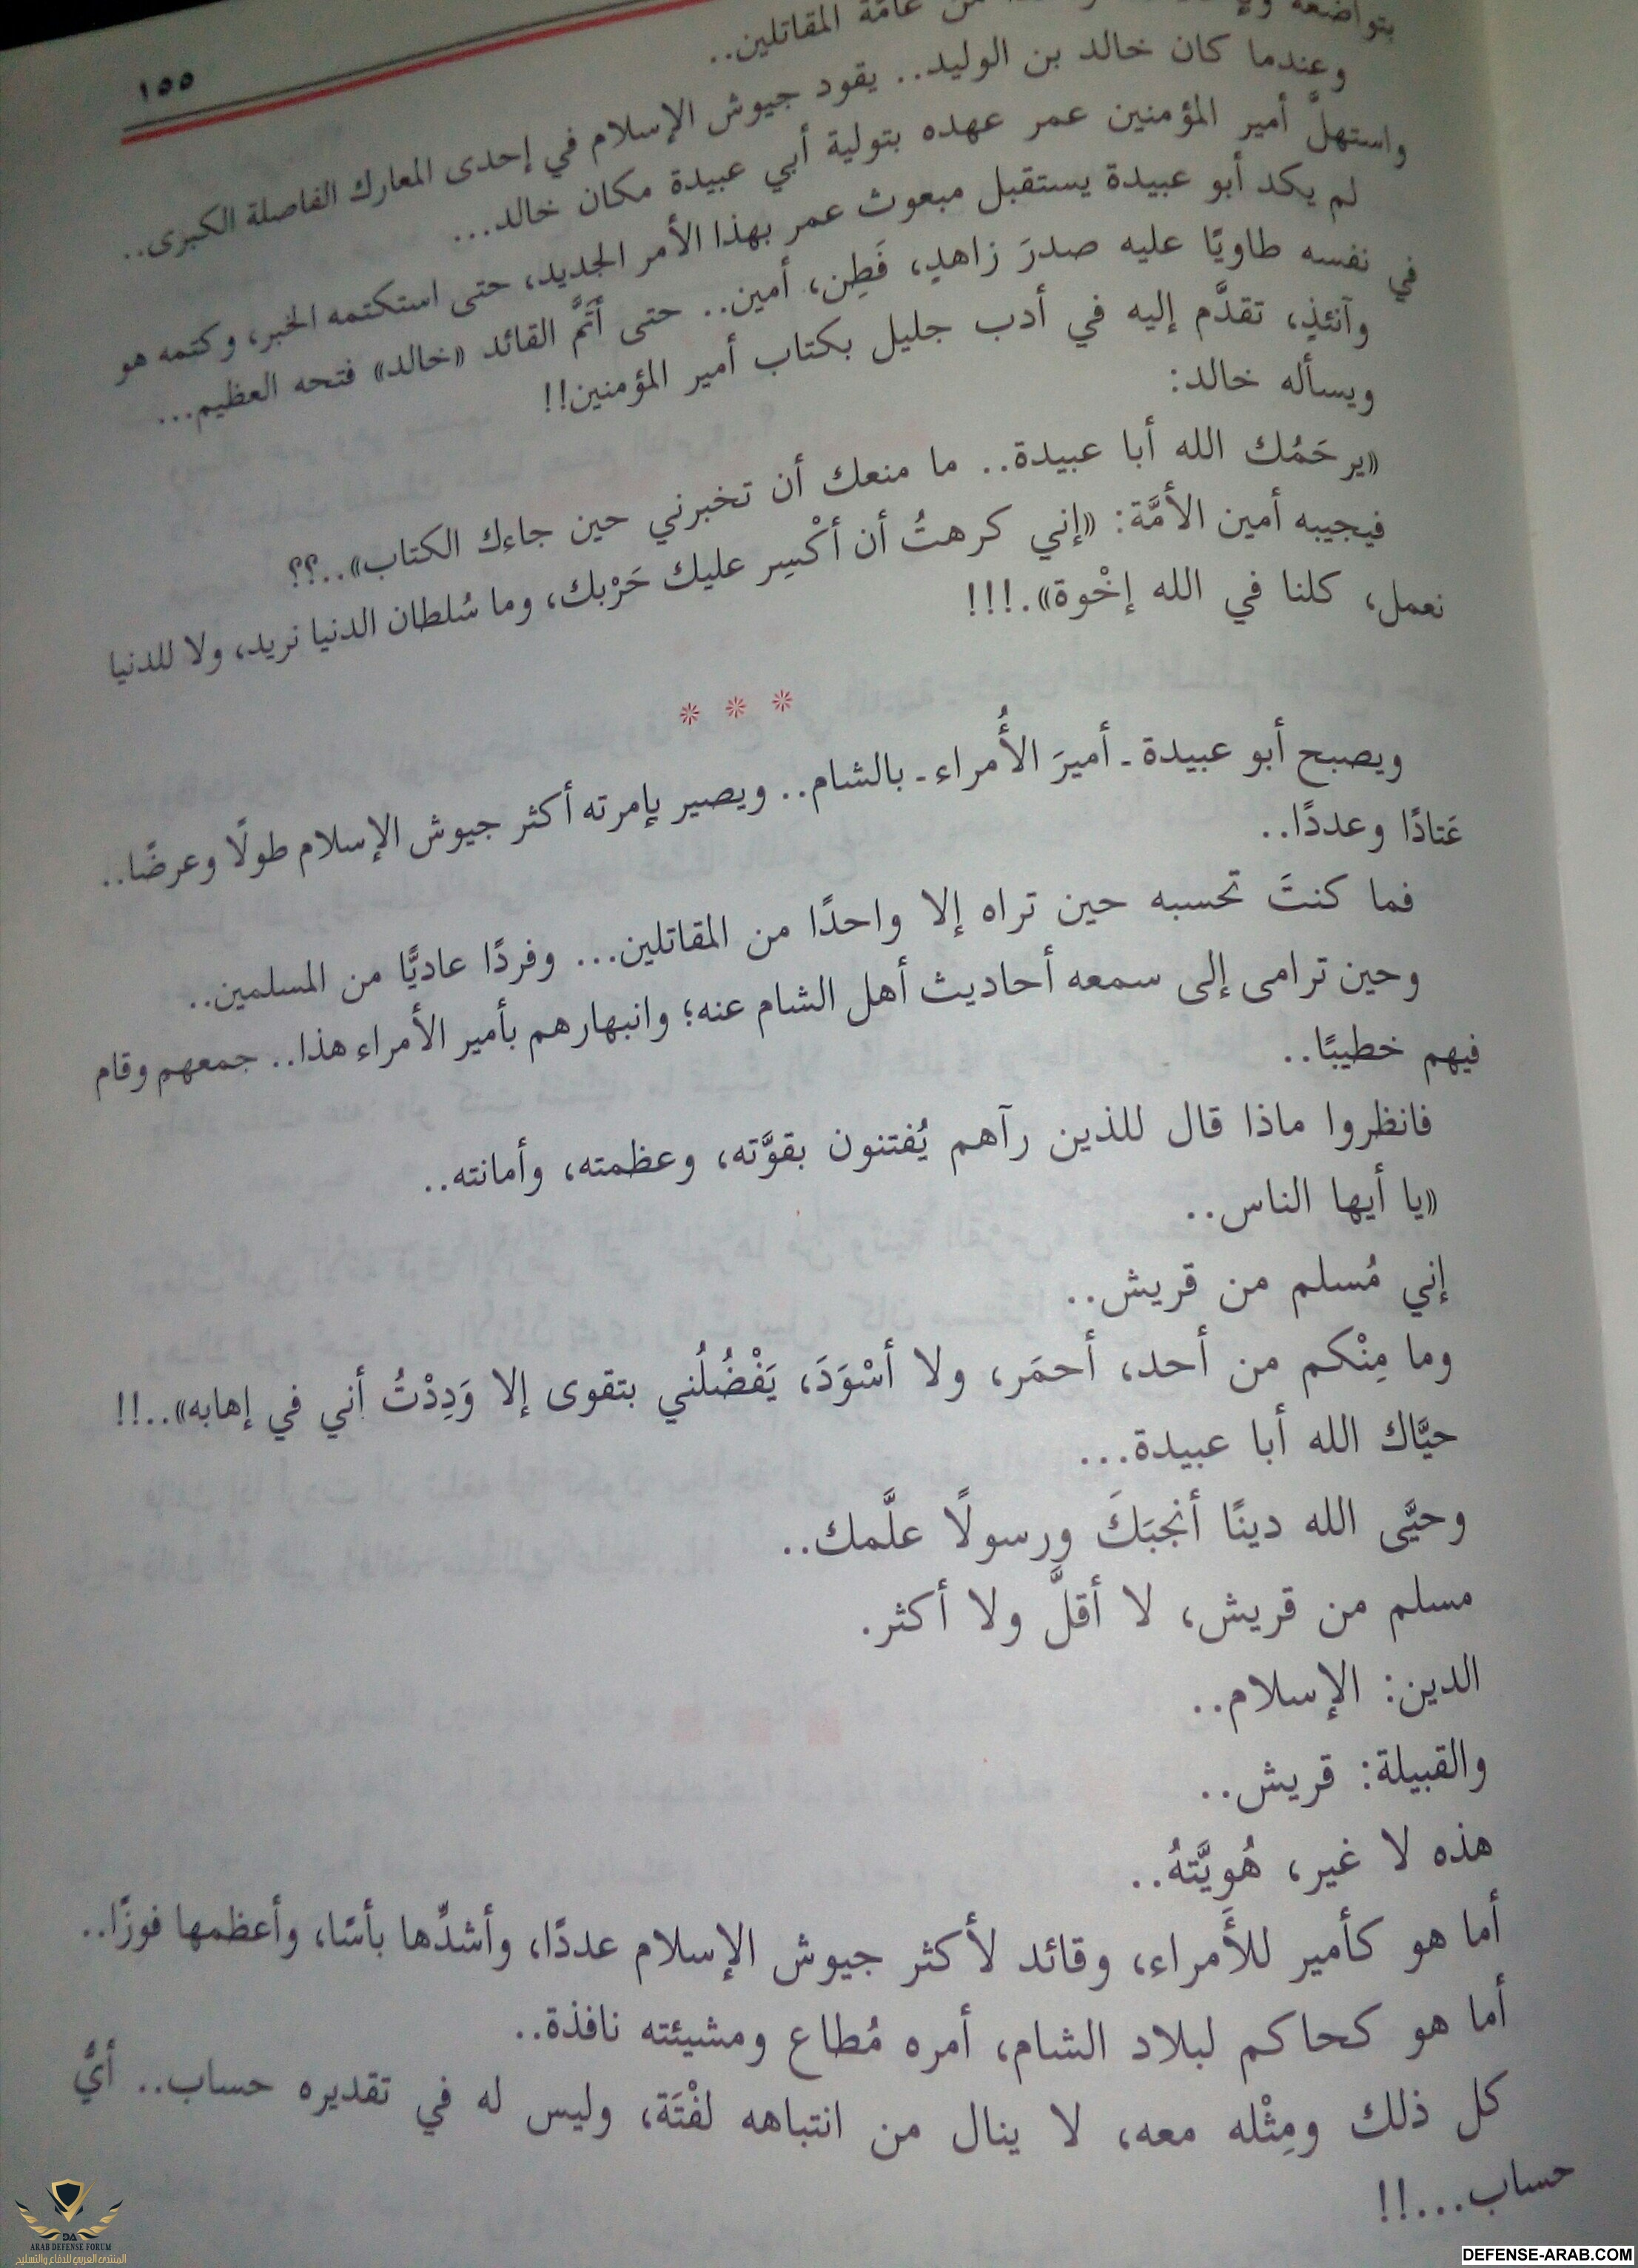 ١٥٥
بتواضعه من عامة المقاتلين..
وعندما كان خالد بن الوليد.. يقود جيوش الإسلام في إحدى المعارك الفاصلة الكبرى..
واستهلَّ أمير المؤمنين عمر عهده بتولية أبي عبيدة مكان خالد...
لم يكد أبو عبيدة يستقبل مبعوث عمر بهذا الأمر الجديد، حتى استكتمه الخبر، وكتمه هو
في نفسه طاويًا عليه صدرَ زاهدٍ، فَطِن، أمين.. حتى أتَمَّ القائد «خالد» فتحه العظيم...
وآنئذٍ، تقدَّم إليه في أدب جليل بكتاب أمير المؤمنين!!
ويسأله خالد:
«يرحَمُك الله أبا عبيدة.. ما منعك أن تخبرني حين جاءك الكتاب»..؟؟
فيجيبه أمين الأمَّة: «إني كرهتُ أن أكْسِر عليك حَرْبك، وما سُلطان الدنيا نريد، ولا للدنيا
نعمل، كلنا في الله إخْوة».!!!
* * *
ويصبح أبو عبيدة ـ أميرَ الأُمراء ـ بالشام.. ويصير بإمرته أكثر جيوش الإسلام طولًا وعرضًا..
عَتادًا وعددًا..
فما كنتَ تحسبه حين تراه إلا واحدًا من المقاتلين... وفردًا عاديًّا من المسلمين..
وحين ترامى إلى سمعه أحاديث أهل الشام عنه؛ وانبهارهم بأمير الأمراء هذا.. جمعهم وقام
فيهم خطيبًا..
فانظروا ماذا قال للذين رآهم يُفتنون بقوَّته، وعظمته، وأمانته..
«يا أيها الناس..
إني مُسلم من قريش..
وما مِنْكم من أحد، أحمَر، ولا أسْوَدَ، يَفْضُلُني بتقوى إلا وَدِدْتُ أني في إهابه»..!!
حيَّاك الله أبا عبيدة...
وحيَّى الله دينًا أنجبَكَ ورسولًا علَّمك..
مسلم من قريش، لا أقلَّ ولا أكثر.
الدين: الإسلام..
والقبيلة: قريش..
هذه لا غير، هُوِيَّتهُ..
أما هو كأمير للأَمراء، وقائد لأكثر جيوش الإسلام عددًا، وأشدِّها بأسًا، وأعظمها فوزًا..
أما هو كحاكم لبلاد الشام، أمره مُطاع ومشيئته نافذة..
كل ذلك ومِثْله معه، لا ينال من انتباهه لفْتَة، وليس له في تقديره حساب.. أيُّ
حساب...!!
DA
ARAB DEFENSE FORUM
المنتدى العربي للدفاع والتسليح
DEFENSE-ARAB.COM